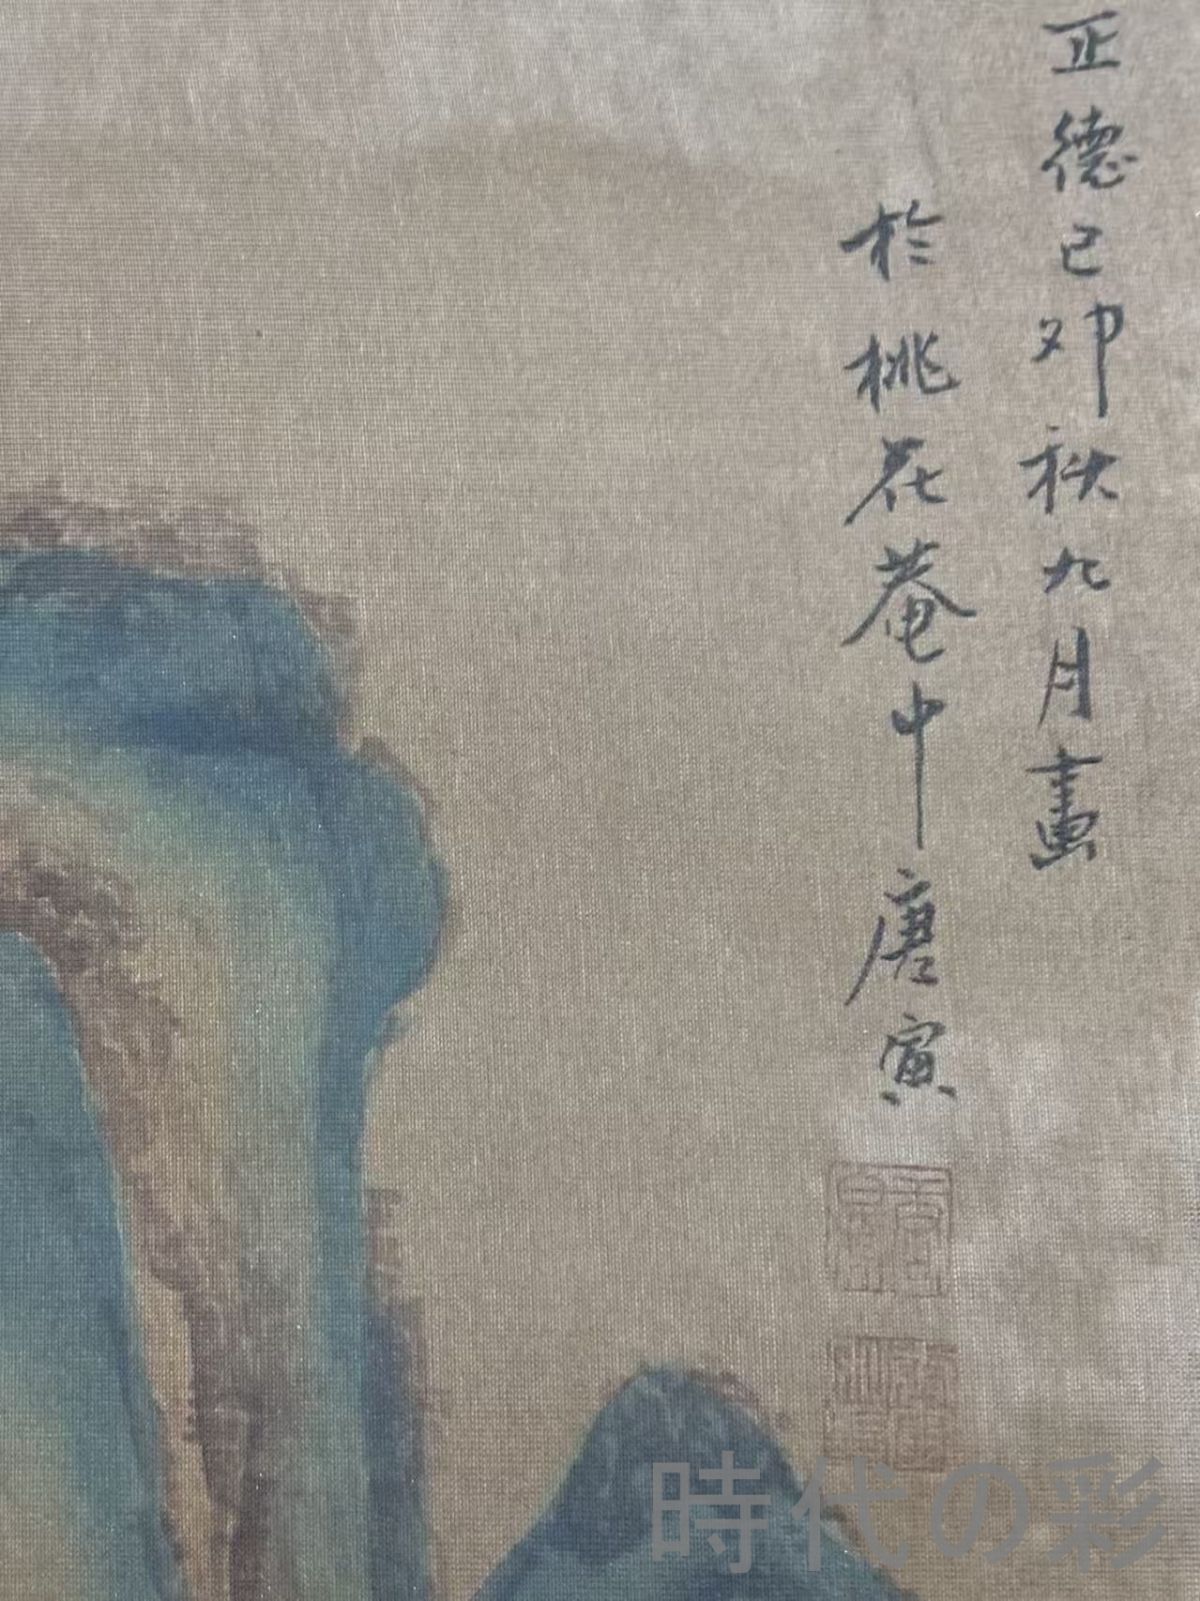 正德己卯秋九月畫
於桃花菴中唐寅
時代の彩